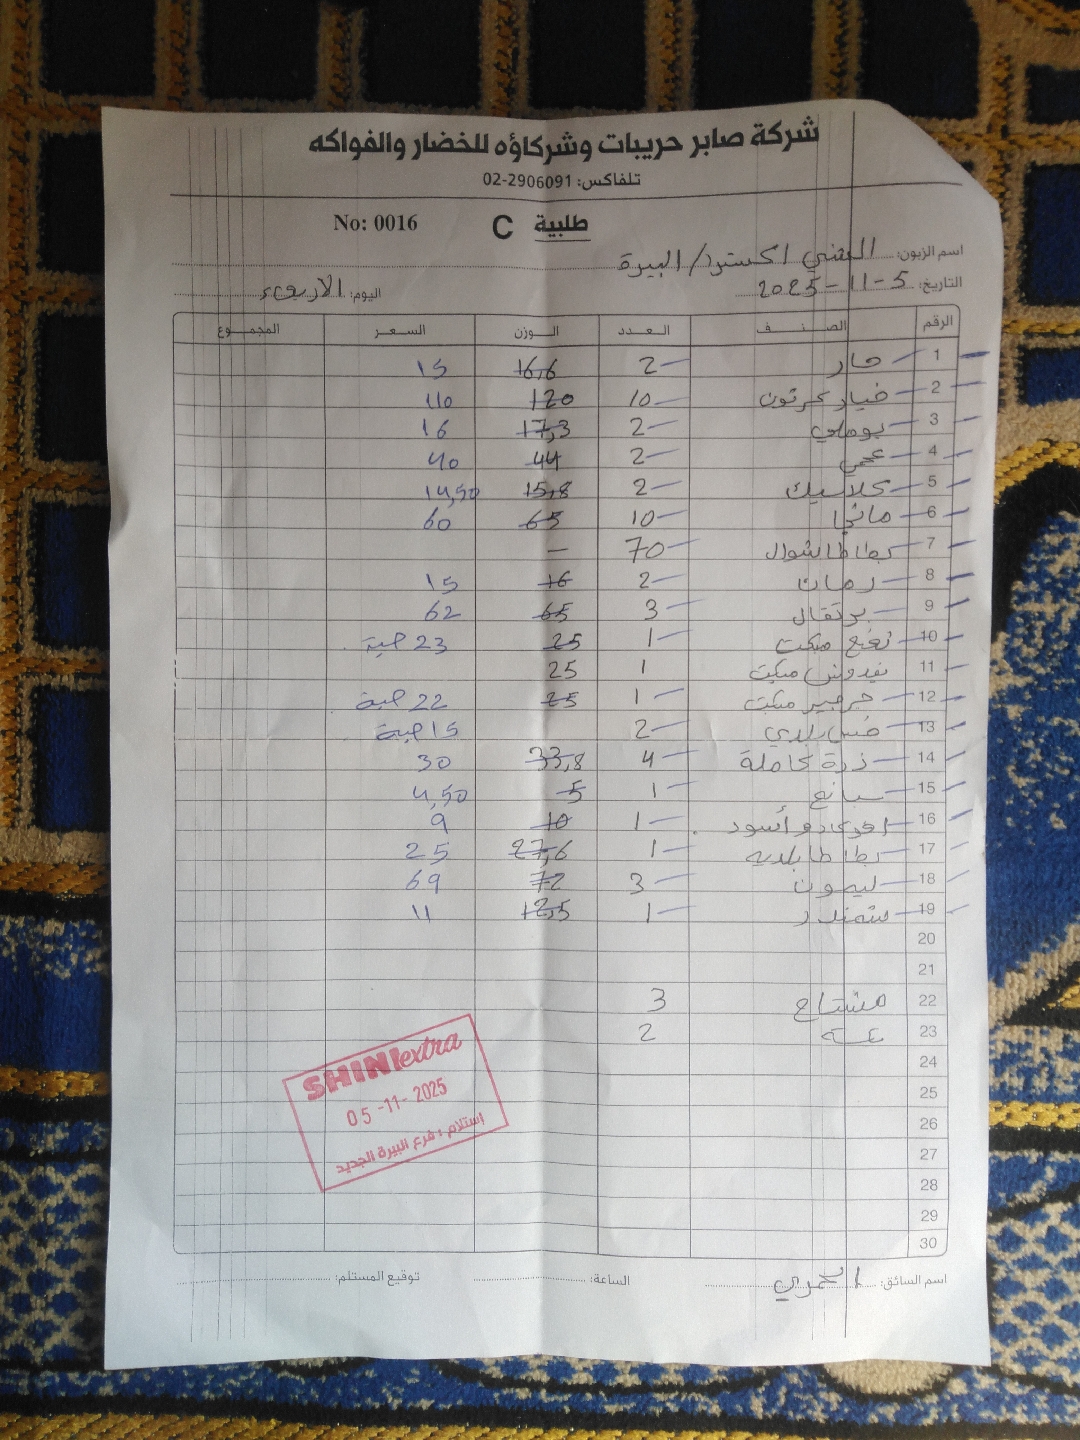 شركة صابر حريبات وشركاؤه للخضار والفواكه
تلفاكس: 02-2906091
طلبية C No: 0016
اسم الزبون: الشني اكسترا/البيرة
التاريخ: 5-11-2025 اليوم: الاربعاء
الرقم الصنف العدد الوزن السعر المجموع
1 حار 2 16,6 15
2 خيار كرتون 10 120 110
3 بوملي 2 17,3 16
4 2 44 40
5 كلاسيك 2 15,8 14,50
6 مانجا 10 65 60
7 بطاطا شوال 70 –
8 رمان 2 16 15
9 برتقال 3 65 62
10 نعنع مبكت 1 25 23 حبة
11 بقدونس مبكت 1 25
12 جرجير مبكت 1 25 22 حبة
13 خس بلدي 2 15 حبة
14 ذرة كاملة 4 33,8 30
15 سبانخ 1 5 4,50
16 افوكادو أسود 1 10 9
17 بطاطا بلديه 1 27,6 25
18 ليمون 3 72 69
19 شمندر 1 12,5 11
20
21
22 مشتاح 3
23 2
24
25
26
27
28
29
30
SHINI extra
05-11-2025
إستلام : فرع البيرة الجديد
اسم السائق: الساعة: توقيع المستلم: